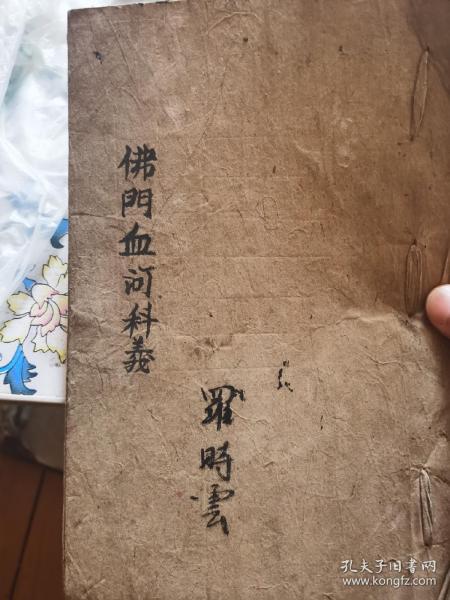 佛門血河科義
羅時雲
孔夫子旧书网
www.kongfz.com